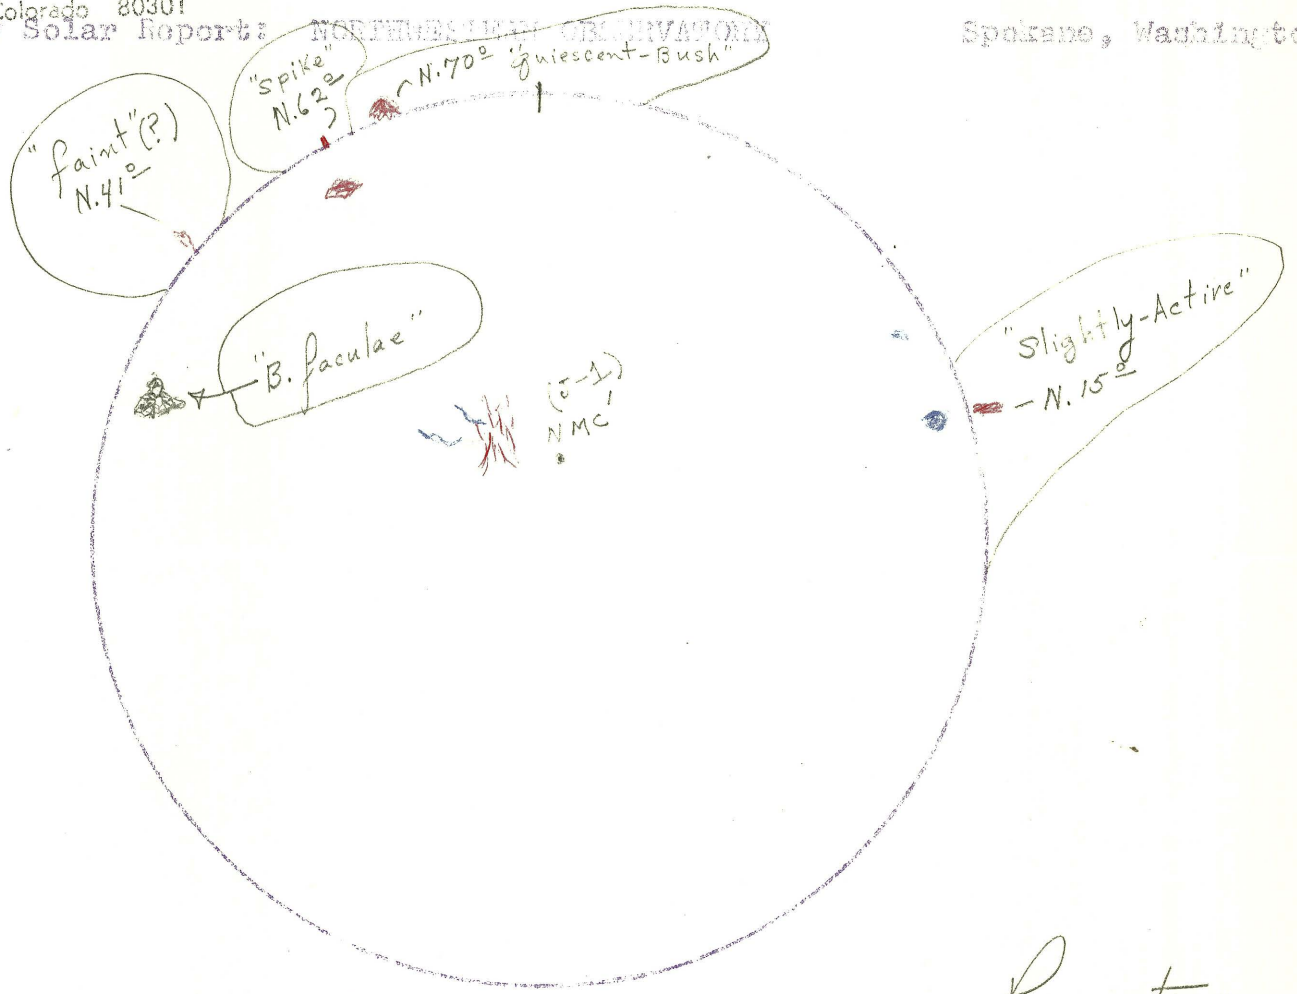 Colorado 80301
Solar Report: NORTHWESTERN OBSERVATORY Spokane, Washingto
"spike"
N.62º
N.70º "quiescent-Bush"
"faint"(?)
N.41º
"B. faculae"
NMC
"Slightly-Active"
- N.15º